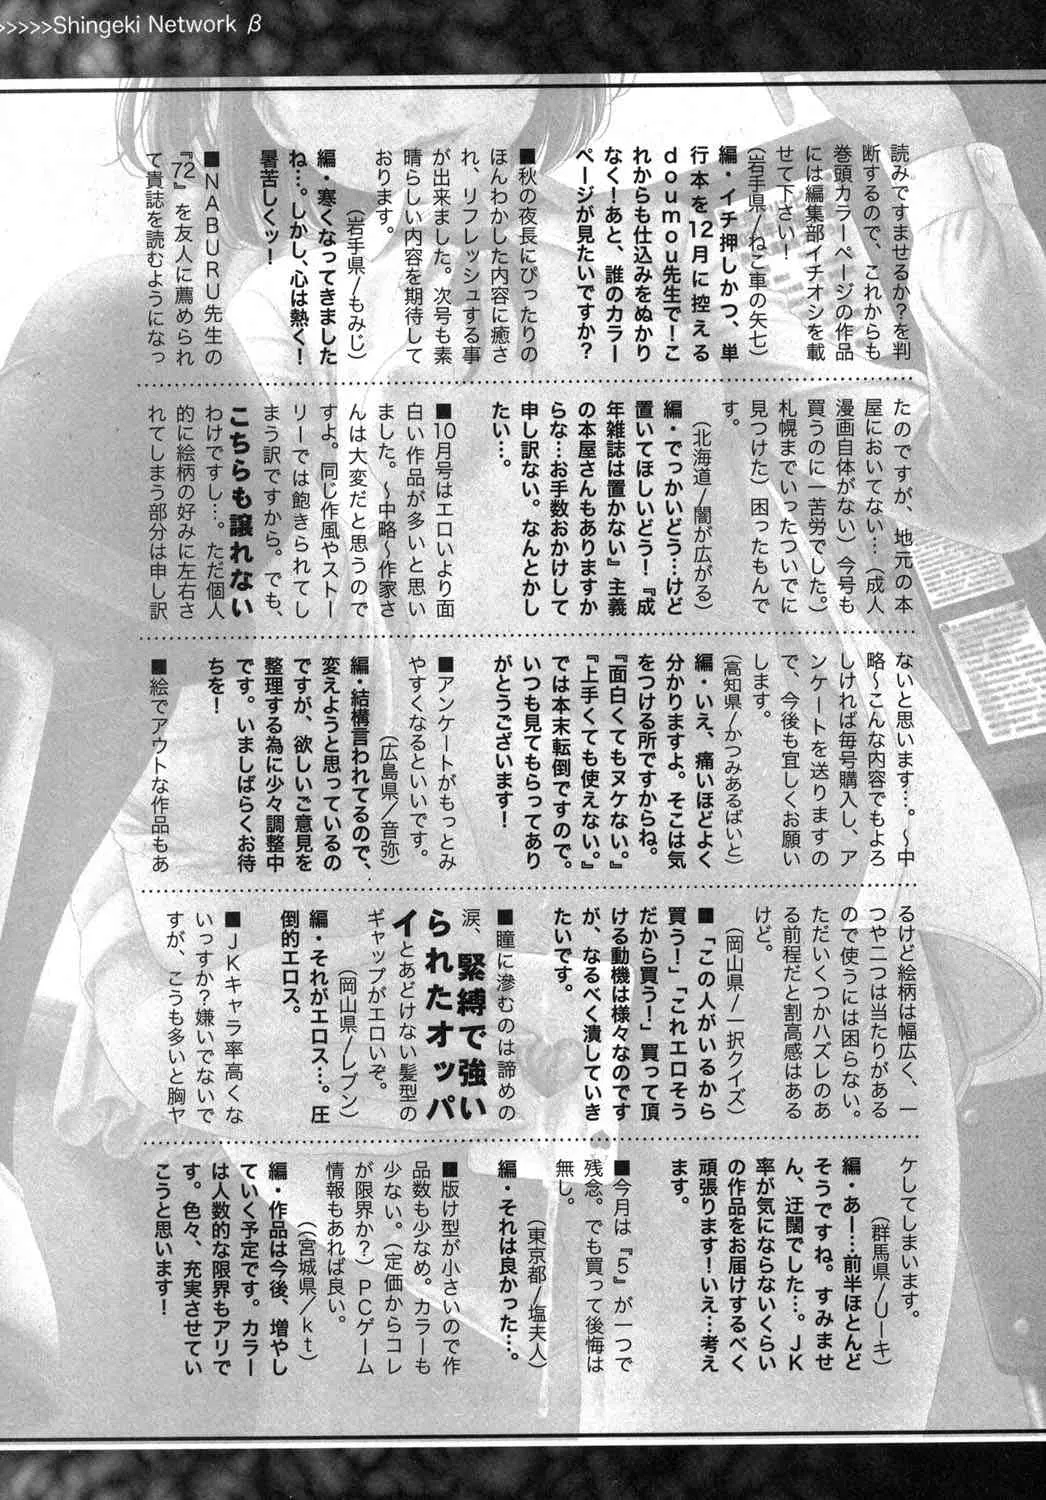 >>>>>Shingeki Network β
読みですませるか？を判
断するので、これからも
巻頭カラーページの作品
には編集部イチオシを載
せて下さい！
（岩手県/ねこ車の矢七）
編・イチ押しかつ、単
行本を12月に控える
doumou先生で！こ
れからも仕込みをぬかり
なく！あと、誰のカラー
ページが見たいですか？
■秋の夜長にぴったりの
ほんわかした内容に癒さ
れ、リフレッシュする事
が出来ました。次号も素
晴らしい内容を期待して
おります。
（岩手県/もみじ）
編・寒くなってきました
ね…。しかし、心は熱く！
暑苦しくッ！
■NABURU先生の
『72』を友人に薦められ
て貴誌を読むようになっ
たのですが、地元の本
屋においてない…（成人
漫画自体がない）今号も
買うのに一苦労でした。（
札幌までいったついでに
見つけた）困ったもんで
す。
（北海道/闇が広がる）
編・でっかいどう…けど
置いてほしいどう！『成
年雑誌は置かない』主義
の本屋さんもありますか
らな…お手数おかけして
申し訳ない。なんとかし
たい…。
■10月号はエロいより面
白い作品が多いと思い
ました。〜中略〜作家さ
んは大変だと思うので
すよ。同じ作風やストー
リーでは飽きられてし
まう訳ですから。でも、
こちらも譲れない
わけですし…。ただ個人
的に絵柄の好みに左右さ
れてしまう部分は申し訳
ないと思います…。〜中
略〜こんな内容でもよろ
しければ毎号購入し、ア
ンケートを送りますの
で、今後も宜しくお願い
します。
（高知県/かつみあるぱいと）
編・いえ、痛いほどよく
分かりますよ。そこは気
をつける所ですからね。
『面白くてもヌケない。』
『上手くても使えない。』
では本末転倒ですので。
いつも見てもらってあり
がとうございます！
■アンケートがもっとみ
やすくなるといいです。
（広島県/音弥）
編・結構言われてるので、
変えようと思っているの
ですが、欲しいご意見を
整理する為に少々調整中
です。いましばらくお待
ちを！
■絵でアウトな作品もあ
るけど絵柄は幅広く、一
つや二つは当たりがある
ので使うには困らない。
ただいくつかハズレのあ
る前程だと割高感はある
けど。
（岡山県/一択クイズ）
■「この人がいるから
買う！」「これエロそう
だから買う！」買って頂
ける動機は様々なのです
が、なるべく潰していき
たいです。
■瞳に滲むのは諦めの
涙、緊縛で強い
られたオッパ
イとあどけない髪型の
ギャップがエロいぞ。
（岡山県/レブン）
編・それがエロス…。圧
倒的エロス。
■JKキャラ率高くな
いっすか？嫌いでないで
すが、こうも多いと胸ヤ
ケしてしまいます。
（群馬県/Uーキ）
編・あー…前半ほとんど
そうですね。すみませ
ん、迂闊でした…。JK
率が気にならないくらい
の作品をお届けするべく
頑張ります！いえ…考え
ます。
■今月は『5』が一つで
残念。でも買って後悔は
無し。
（東京都/塩夫人）
編・それは良かった…。
■版け型が小さいので作
品数も少なめ。カラーも
少ない。（定価からコレ
が限界か？）PCゲーム
情報もあれば良い。
（宮城県/kt）
編・作品は今後、増やし
ていく予定です。カラー
は人数的な限界もアリで
す。色々、充実させてい
こうと思います！